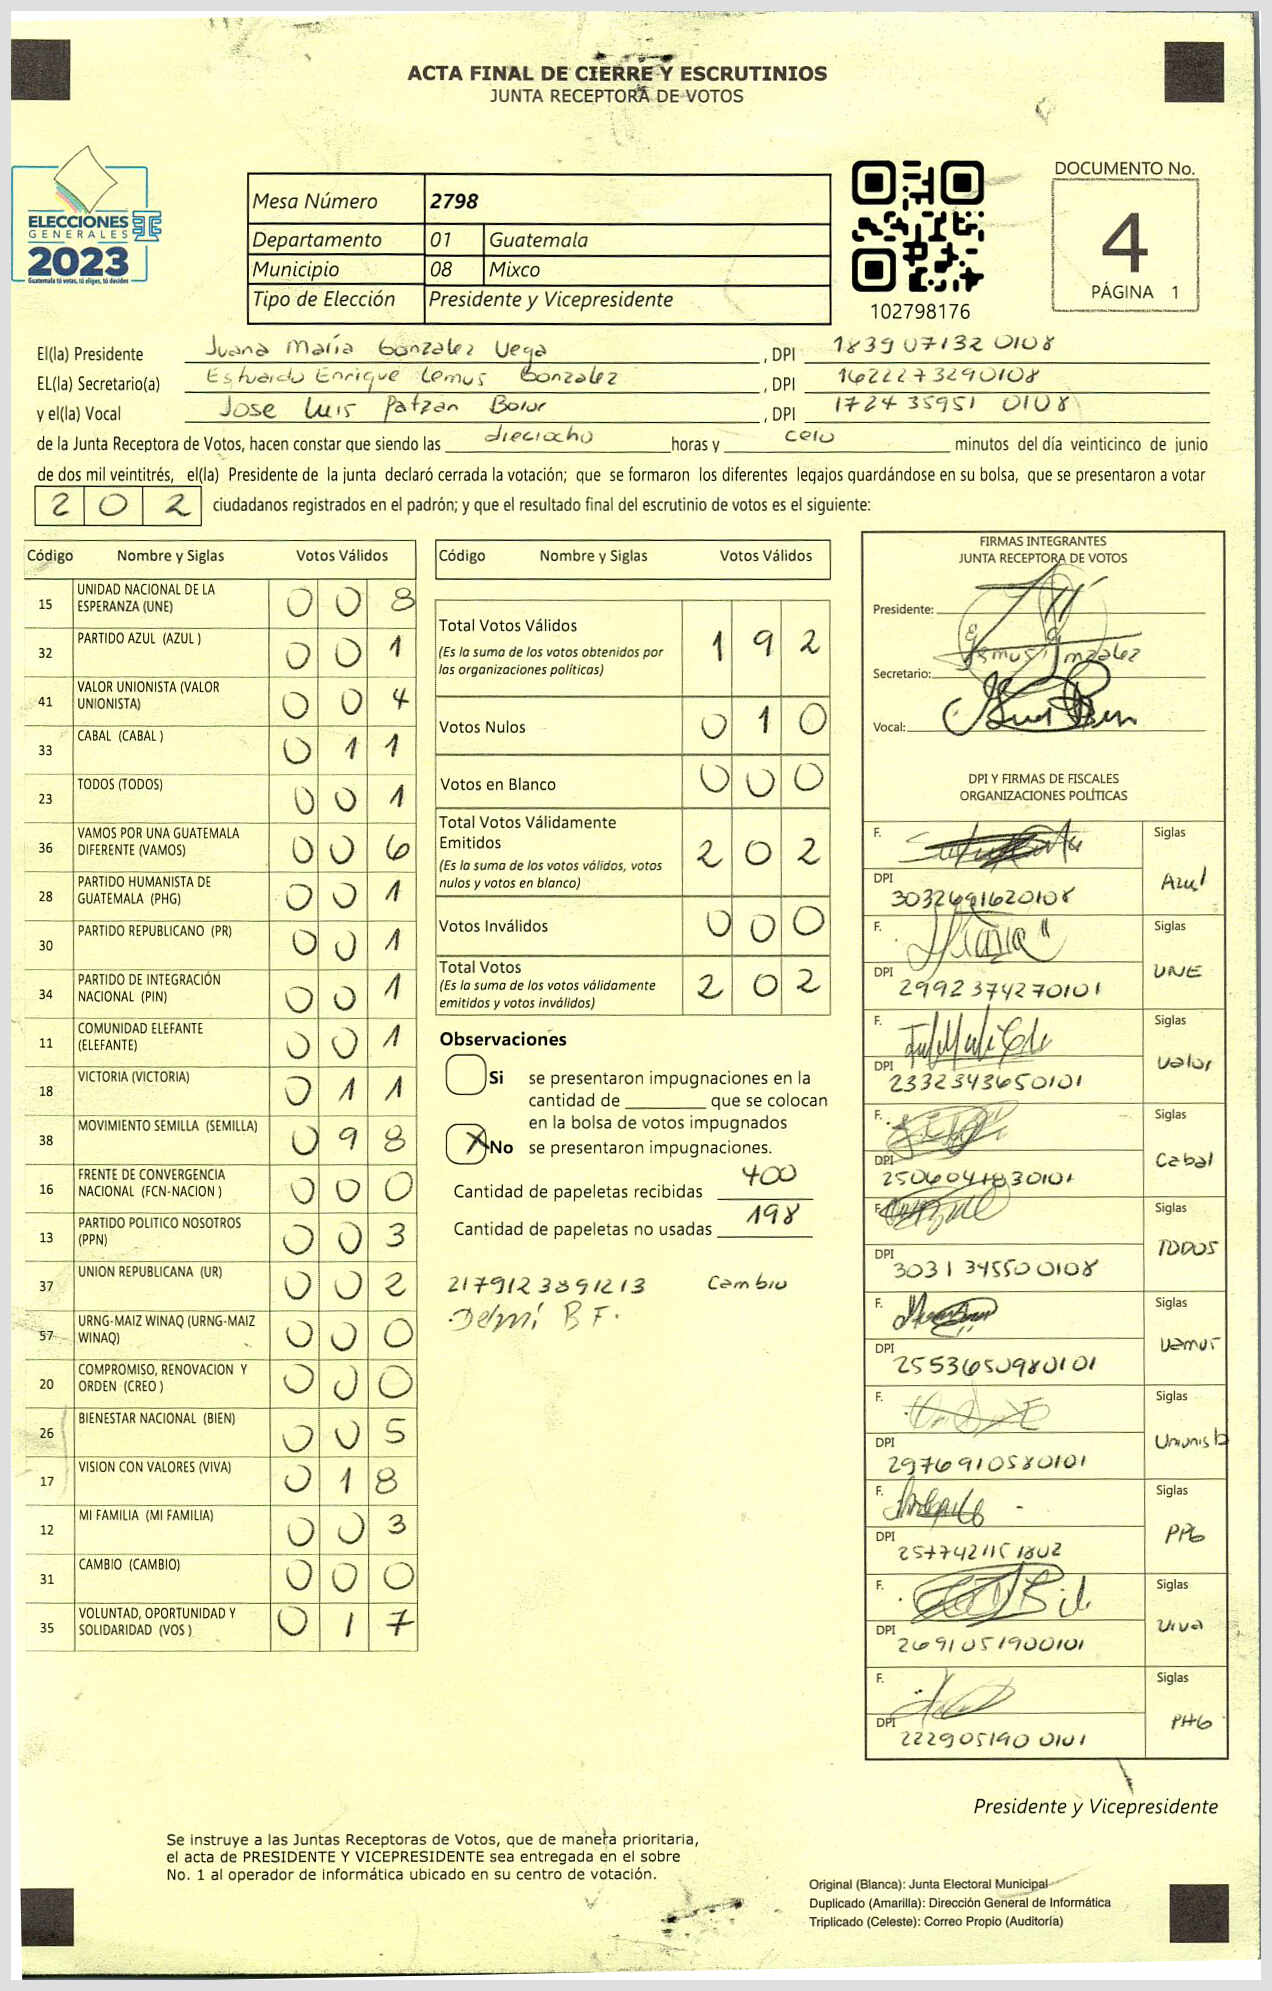 ACTA FINAL DE CIERRE Y ESCRUTINIOS
JUNTA RECEPTORA DE VOTOS
ELECCIONES
GENERALES
2023
Guatemala tú votas, tú eliges, tú decides
Mesa Número 2798
Departamento 01 Guatemala
Municipio 08 Mixco
Tipo de Elección Presidente y Vicepresidente
102798176
DOCUMENTO No.
4
PÁGINA 1
El(la) Presidente Juana María Gonzalez Vega , DPI 183907132 0108
EL(la) Secretario(a) Estuardo Enrique Lemus Gonzalez , DPI 1622273290108
y el(la) Vocal Jose Luis Patzan , DPI 172435951 0108
de la Junta Receptora de Votos, hacen constar que siendo las dieciocho horas y cero minutos del día veinticinco de junio
de dos mil veintitrés, el(la) Presidente de la junta declaró cerrada la votación; que se formaron los diferentes legajos guardándose en su bolsa, que se presentaron a votar
202 ciudadanos registrados en el padrón; y que el resultado final del escrutinio de votos es el siguiente:
Código Nombre y Siglas Votos Válidos
15 UNIDAD NACIONAL DE LA ESPERANZA (UNE) 0 0 8
32 PARTIDO AZUL (AZUL ) 0 0 1
41 VALOR UNIONISTA (VALOR UNIONISTA) 0 0 4
33 CABAL (CABAL ) 0 1 1
23 TODOS (TODOS) 0 0 1
36 VAMOS POR UNA GUATEMALA DIFERENTE (VAMOS) 0 0 6
28 PARTIDO HUMANISTA DE GUATEMALA (PHG) 0 0 1
30 PARTIDO REPUBLICANO (PR) 0 0 1
34 PARTIDO DE INTEGRACIÓN NACIONAL (PIN) 0 0 1
11 COMUNIDAD ELEFANTE (ELEFANTE) 0 0 1
18 VICTORIA (VICTORIA) 0 1 1
38 MOVIMIENTO SEMILLA (SEMILLA) 0 9 8
16 FRENTE DE CONVERGENCIA NACIONAL (FCN-NACION ) 0 0 0
13 PARTIDO POLITICO NOSOTROS (PPN) 0 0 3
37 UNION REPUBLICANA (UR) 0 0 2
57 URNG-MAIZ WINAQ (URNG-MAIZ WINAQ) 0 0 0
20 COMPROMISO, RENOVACION Y ORDEN (CREO ) 0 0 0
26 BIENESTAR NACIONAL (BIEN) 0 0 5
17 VISION CON VALORES (VIVA) 0 1 8
12 MI FAMILIA (MI FAMILIA) 0 0 3
31 CAMBIO (CAMBIO) 0 0 0
35 VOLUNTAD, OPORTUNIDAD Y SOLIDARIDAD (VOS ) 0 1 7
Código Nombre y Siglas Votos Válidos
Total Votos Válidos 1 9 2
(Es la suma de los votos obtenidos por
las organizaciones políticas)
Votos Nulos 0 1 0
Votos en Blanco 0 0 0
Total Votos Válidamente
Emitidos 2 0 2
(Es la suma de los votos válidos, votos
nulos y votos en blanco)
Votos Inválidos 0 0 0
Total Votos 2 0 2
(Es la suma de los votos válidamente
emitidos y votos inválidos)
Observaciones
Si se presentaron impugnaciones en la
cantidad de ________ que se colocan
en la bolsa de votos impugnados
X No se presentaron impugnaciones.
Cantidad de papeletas recibidas 400
Cantidad de papeletas no usadas 198
2179123891213 Cambio
Delmi B F.
FIRMAS INTEGRANTES
JUNTA RECEPTORA DE VOTOS
Presidente:
Secretario:
Vocal:
DPI Y FIRMAS DE FISCALES
ORGANIZACIONES POLÍTICAS
F. Siglas
DPI 3032691620108 Azul
F. Siglas
DPI 2992374270101 UNE
F. Siglas
DPI 2332343650101 Valor
F. Siglas
DPI Cabal
F. Siglas
DPI 3031345500108 TODOS
F. Siglas
DPI 2553650980101 Vamos
F. Siglas
DPI 2976910580101
F. Siglas
DPI
F. Siglas
DPI 2691051900101 Viva
F. Siglas
DPI 222905190 0101 PHG
Presidente y Vicepresidente
Se instruye a las Juntas Receptoras de Votos, que de manera prioritaria,
el acta de PRESIDENTE Y VICEPRESIDENTE sea entregada en el sobre
No. 1 al operador de informática ubicado en su centro de votación.
Original (Blanca): Junta Electoral Municipal
Duplicado (Amarilla): Dirección General de Informática
Triplicado (Celeste): Correo Propio (Auditoría)